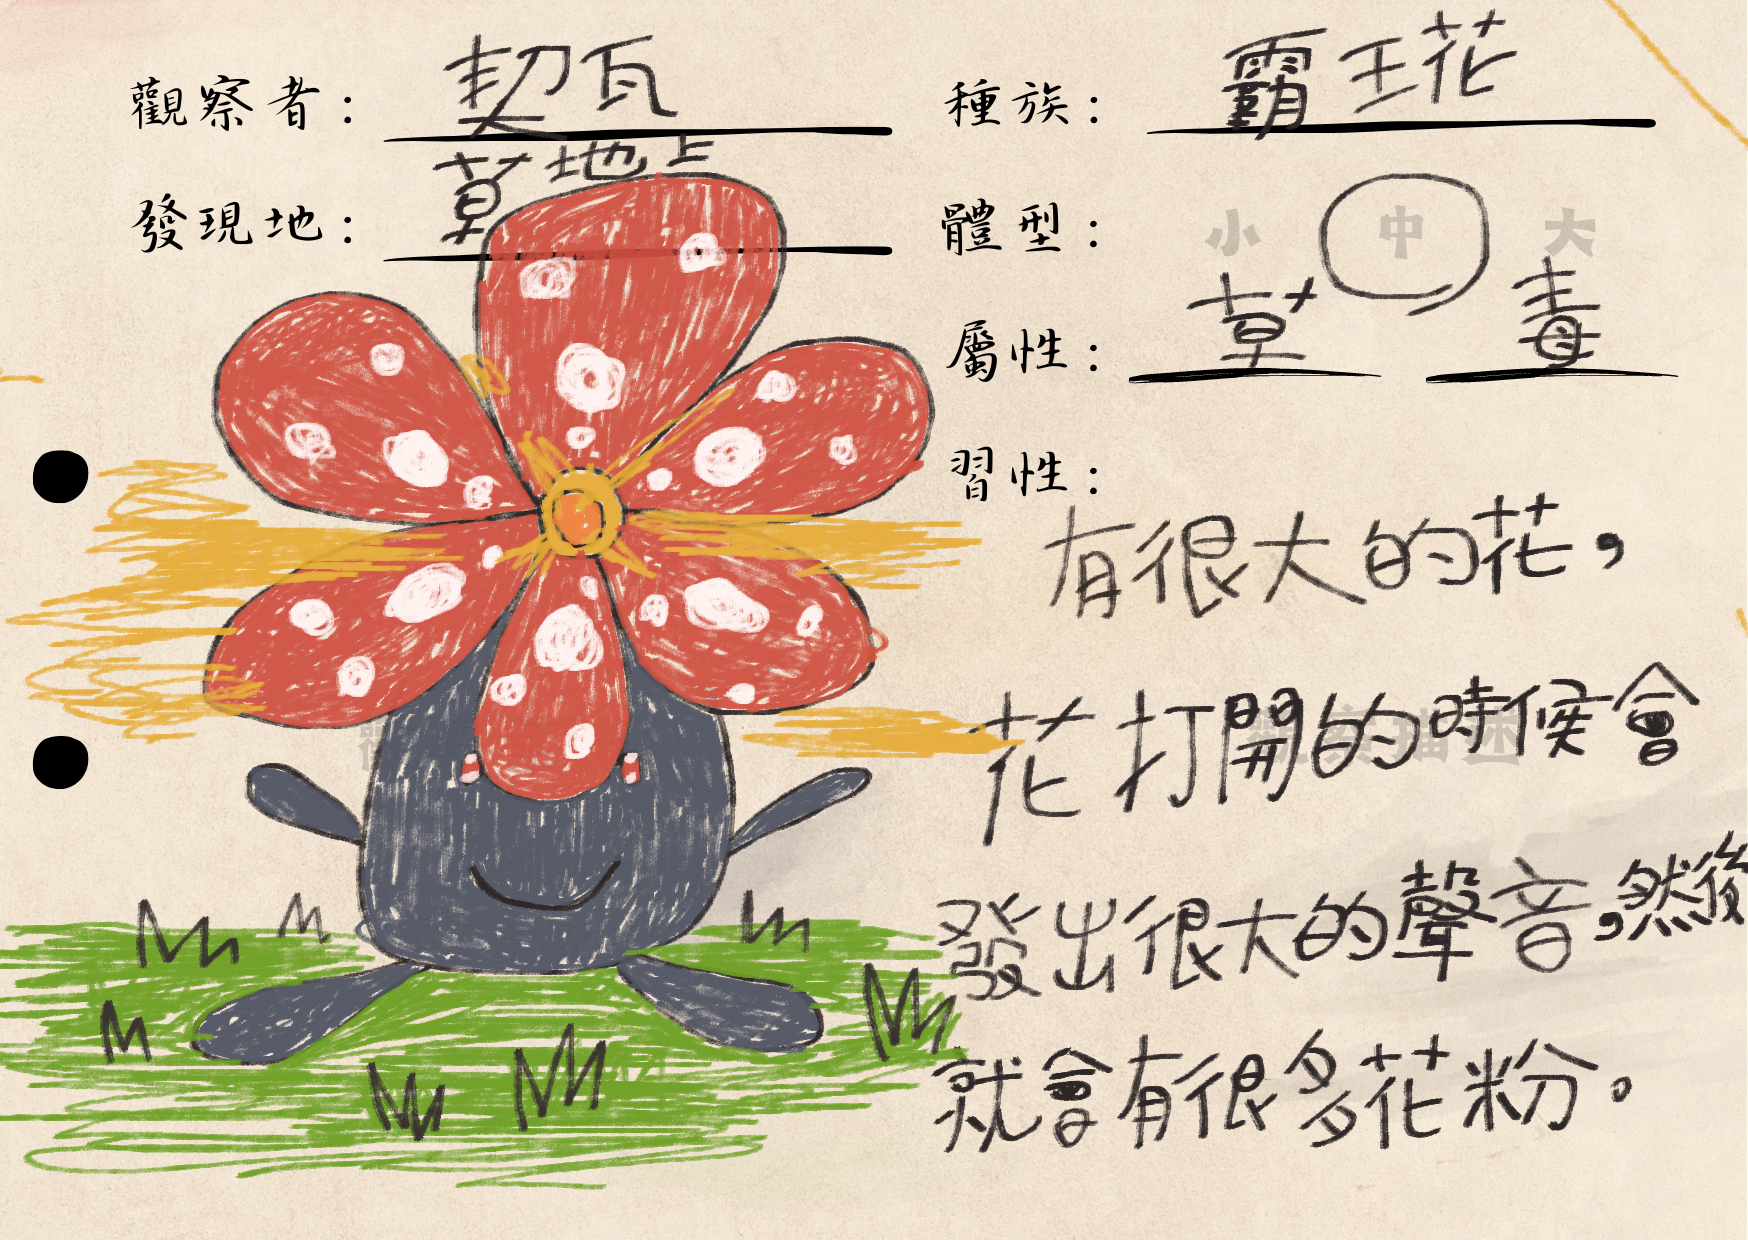 觀察者：契瓦
種族：霸王花
發現地：草地上
體型：小 中 大
屬性：草 毒
習性：
有很大的花，
花打開的時候會
發出很大的聲音，然後
就會有很多花粉。